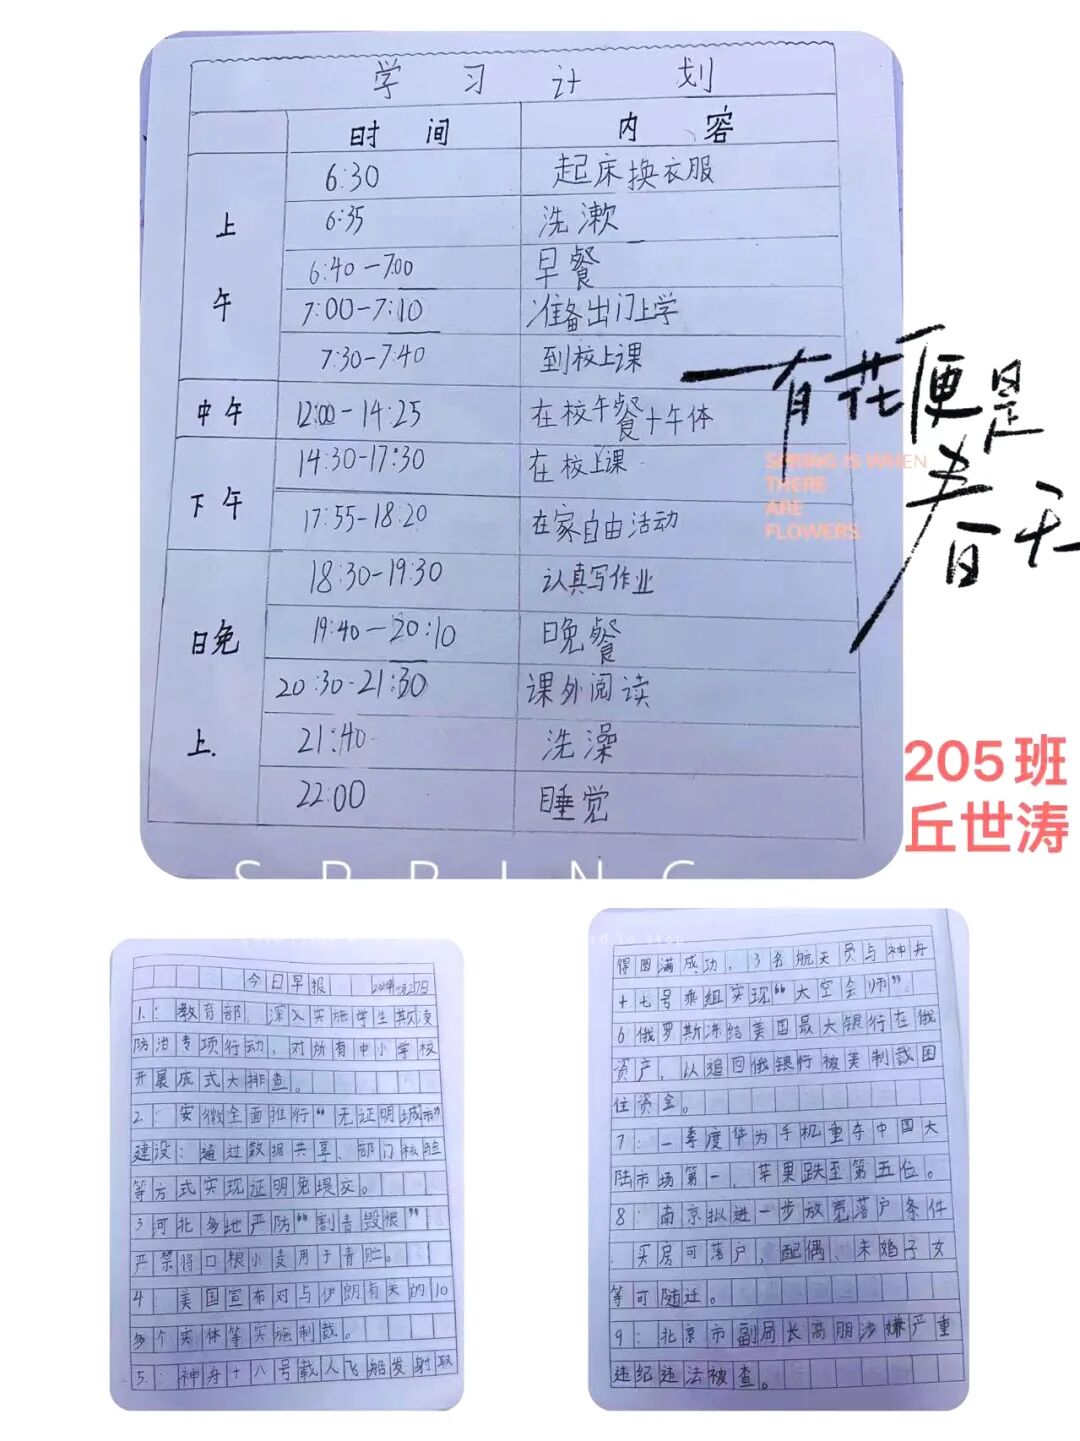 学习计划
时间 内容
上午
6:30 起床换衣服
6:35 洗漱
6:40-7:00 早餐
7:00-7:10 准备出门上学
7:30-7:40 到校上课
中午 12:00-14:25 在校午餐+午休
下午
14:30-17:30 在校上课
17:55-18:20 在家自由活动
晚上.
18:30-19:30 认真写作业
19:40-20:10 晚餐
20:30-21:30 课外阅读
21:40 洗澡
22:00 睡觉
有花便是
春天
SPRING IS WHEN
THERE
ARE
FLOWERS
205班
丘世涛
SPRING
今日早报
1.:教育部,深入实施学生欺凌
防治专项行动,对所有中小学校
开展底式大排查。
2.:安徽全面推行“无证明城市”
建设:通过数据共享、部门核验
等方式实现证明免提交。
3河北多地严防“割青毁粮”
严禁将口粮小麦用于青贮。
4:美国宣布对与伊朗有关的10
多个实体等实施制裁。
5.:神舟十八号载人飞船发射取
得圆满成功,3名航天员与神舟
十七号乘组实现“太空会师”。
6俄罗斯冻结美国最大银行在俄
资产,以追回俄银行被美制裁困
住资金。
7:一季度华为手机重夺中国大
陆市场第一,苹果跌至第五位。
8:南京拟进一步放宽落户条件
.买房可落户,配偶、未婚子女
等可随迁。
9:北京市副局长高朋涉嫌严重
违纪违法被查。